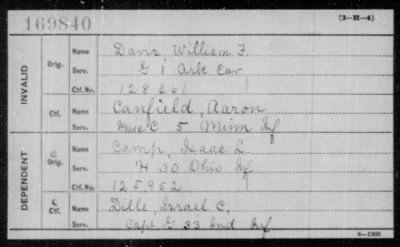 169840
(3-H-4)
INVALID
Orig.
Name Davis, William F.
Serv. G 1 Ark Cav
Ctf. No. 128261
Ctf.
Name Canfield, Aaron
Serv. C 5 Minn Inf
DEPENDENT
C
Orig.
Name Camp, Isaac L.
Serv. H 30 Ohio Inf
Ctf. No. 125,862
C
Ctf.
Name Dille, Israel C.
Serv. Capt G 33 Ind Inf
6-1308